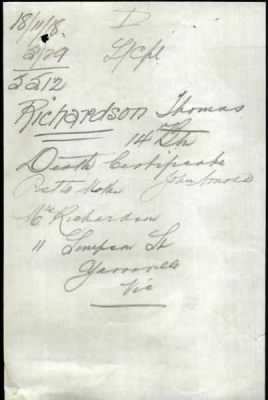 18/11/18. D
29 L/Cpl.
2212
Richardson Thomas
14th
Death Certificate
John Arnold
Mr Richardson
11 Simpson St
Yarraville
Vic